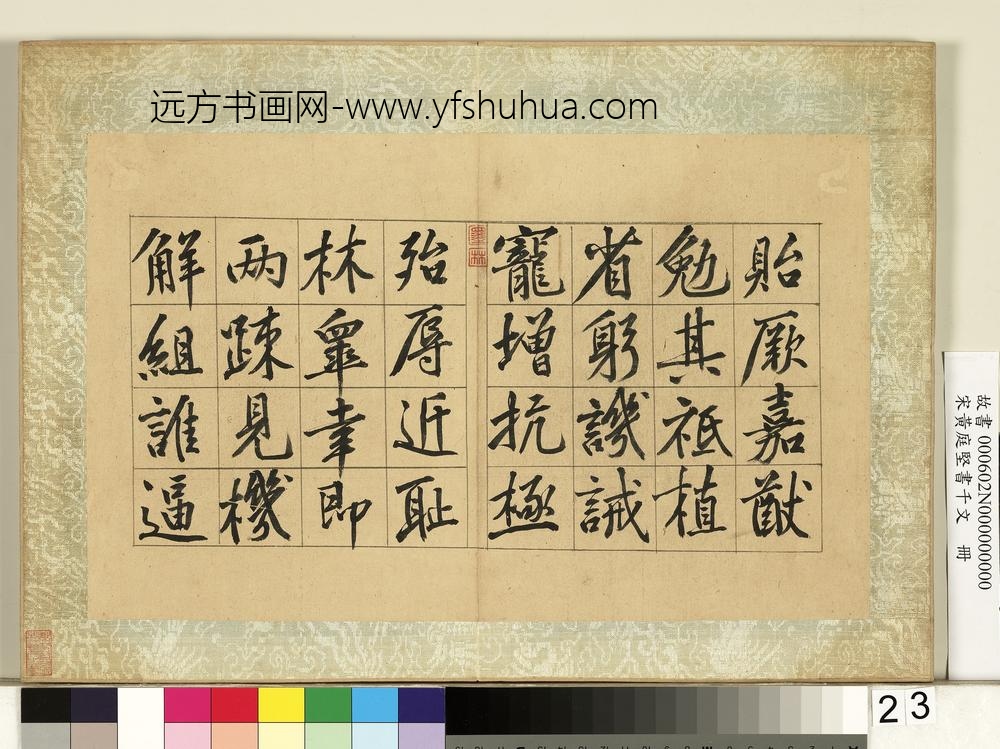 远方书画网-www.yfshuhua.com
貽厥嘉猷
勉其祗植
省躬譏誡
寵增抗極
殆辱近耻
林皐幸即
两疎見機
解組誰逼
故書 000602N000000000
宋黃庭堅書千文 冊
23